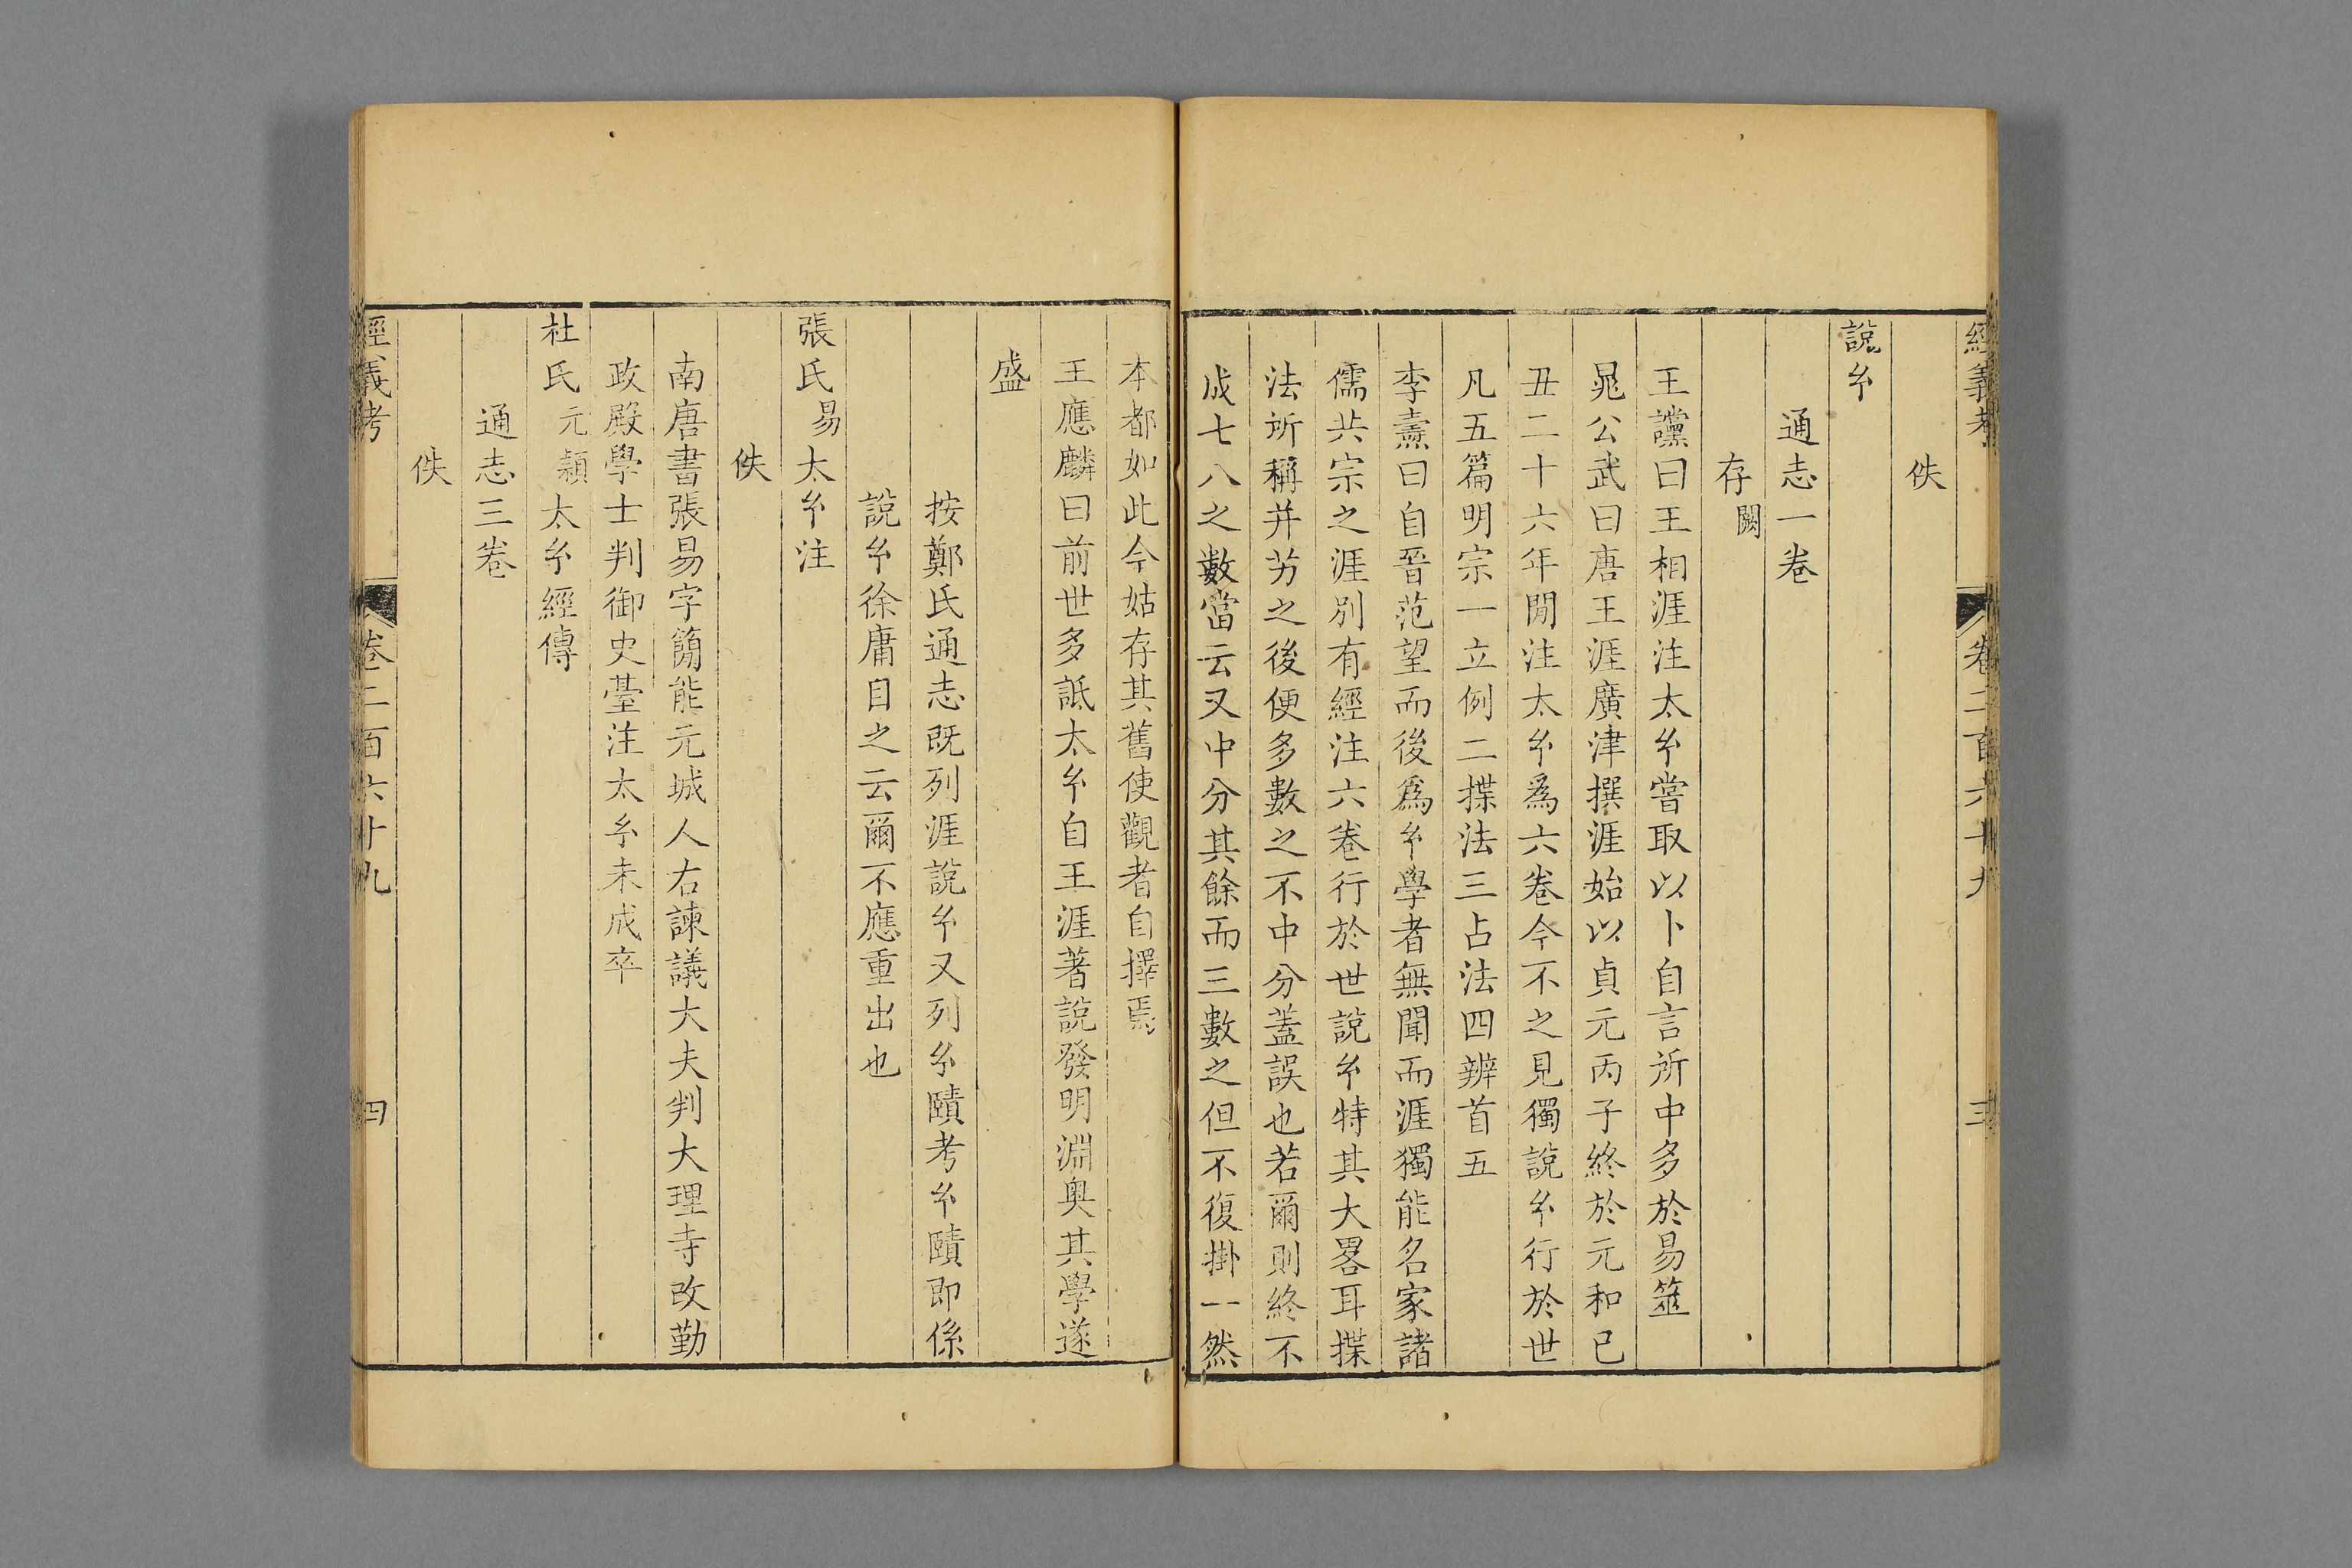 經義考　卷二百六十九　三
佚
說玄
通志一卷
存闕
王讜曰王相涯注太玄嘗取以卜自言所中多於易筮
晁公武曰唐王涯廣津撰涯始以貞元丙子終於元和己
丑二十六年閒注太玄爲六卷今不之見獨說玄行於世
凡五篇明宗一立例二揲法三占法四辨首五
李燾曰自晉范望而後爲玄學者無聞而涯獨能名家諸
儒共宗之涯別有經注六卷行於世說玄特其大畧耳揲
法所稱并芳之後便多數之不中分蓋誤也若爾則終不
成七八之數當云又中分其餘而三數之但不復掛一然
本都如此今姑存其舊使觀者自擇焉
王應麟曰前世多詆太玄自王涯著說發明淵奥其學遂
盛
按鄭氏通志既列涯說玄又列玄賾考玄賾即係
說玄徐庸目之云爾不應重出也
張氏易太玄注
佚
南唐書張易字簡能元城人右諫議大夫判大理寺改勤
政殿學士判御史臺注太玄未成卒
杜氏元穎太玄經傳
通志三卷
佚
經義考　卷二百六十九　四